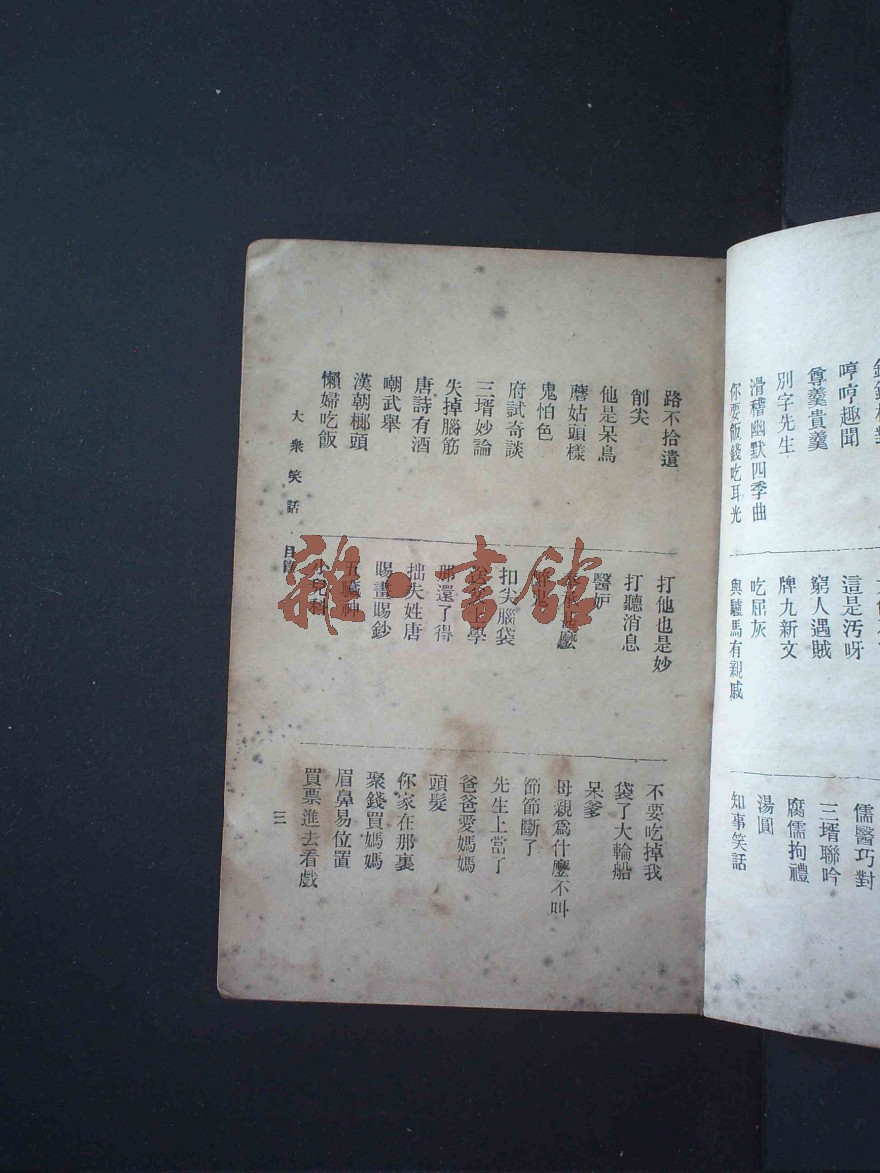 儒醫巧對
三壻聯吟
腐儒拘禮
湯圓
知事笑話
這是汚呀
窮人遇賊
牌九新文
吃屈灰
與驢馬有親戚
哼哼趣聞
尊羹貴羹
別字先生
滑稽幽默四季曲
你要飯錢吃耳光
路不拾遺
削尖
他是呆鳥
蘑姑頭樣
鬼怕色
府試奇談
三壻妙論
失掉腦筋
唐詩有酒
嘲武舉
漢朝榔頭
懶婦吃飯
打他也是妙
打聽消息
醫妒
扣尖腦袋
送父上學
那還了得
拙夫姓唐
賜畫賜鈔
五臟神
小兒科
不要吃掉我
袋了大輪船
呆爹
母親爲什麼不叫
節節斷了
先生上當了
爸爸愛媽媽
頭髮
你家在那裏
聚錢買媽媽
眉鼻易位置
買票進去看戲
大衆笑話 目錄
三
雜·書館